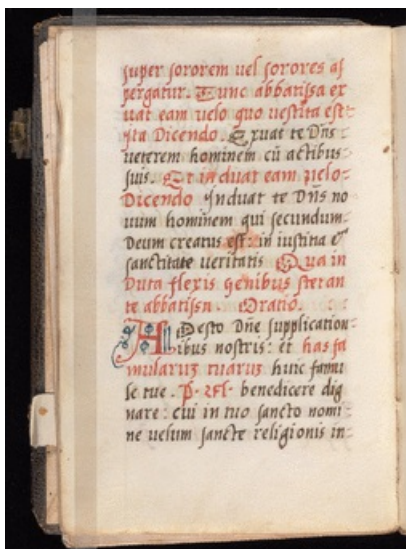 super sororem vel sorores as
pergatur. Tunc abbatissa ex
uat eam uelo quo uestita est
ita Dicendo. Exuat te Dn̄s
ueterem hominem cū actibus
suis. Et induat eam uelo
Dicendo Induat te Dn̄s no
uum hominem qui secundum
Deum creatus est: in iustitia et
sanctitate veritatis Qua in
Duta flexis genibus
te abbatissa. Oratio.
Adesto Dn̄e supplication
ibus nostris: et has fa
mularuz tuaruz huic famu
le tue. benedicere dig
nare: cui in tuo sancto nomi
ne velum sancte religionis in